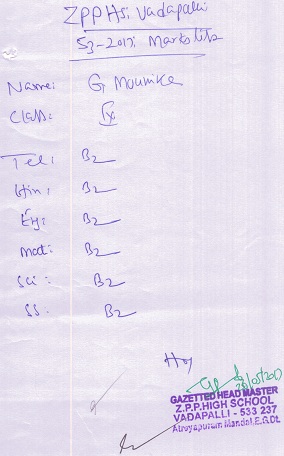 ZPPHS; Vadapalli
S3-2017; Marks list
Name: G Mounika
Class: IX
Tel: B2
Hin: B2
Eng: B2
mat: B2
sci: B2
SS: B2
GAZETTED HEAD MASTER
Z.P.P.HIGH SCHOOL
VADAPALLI - 533 237
Atreyapuram Mandal, E.G.Dt.